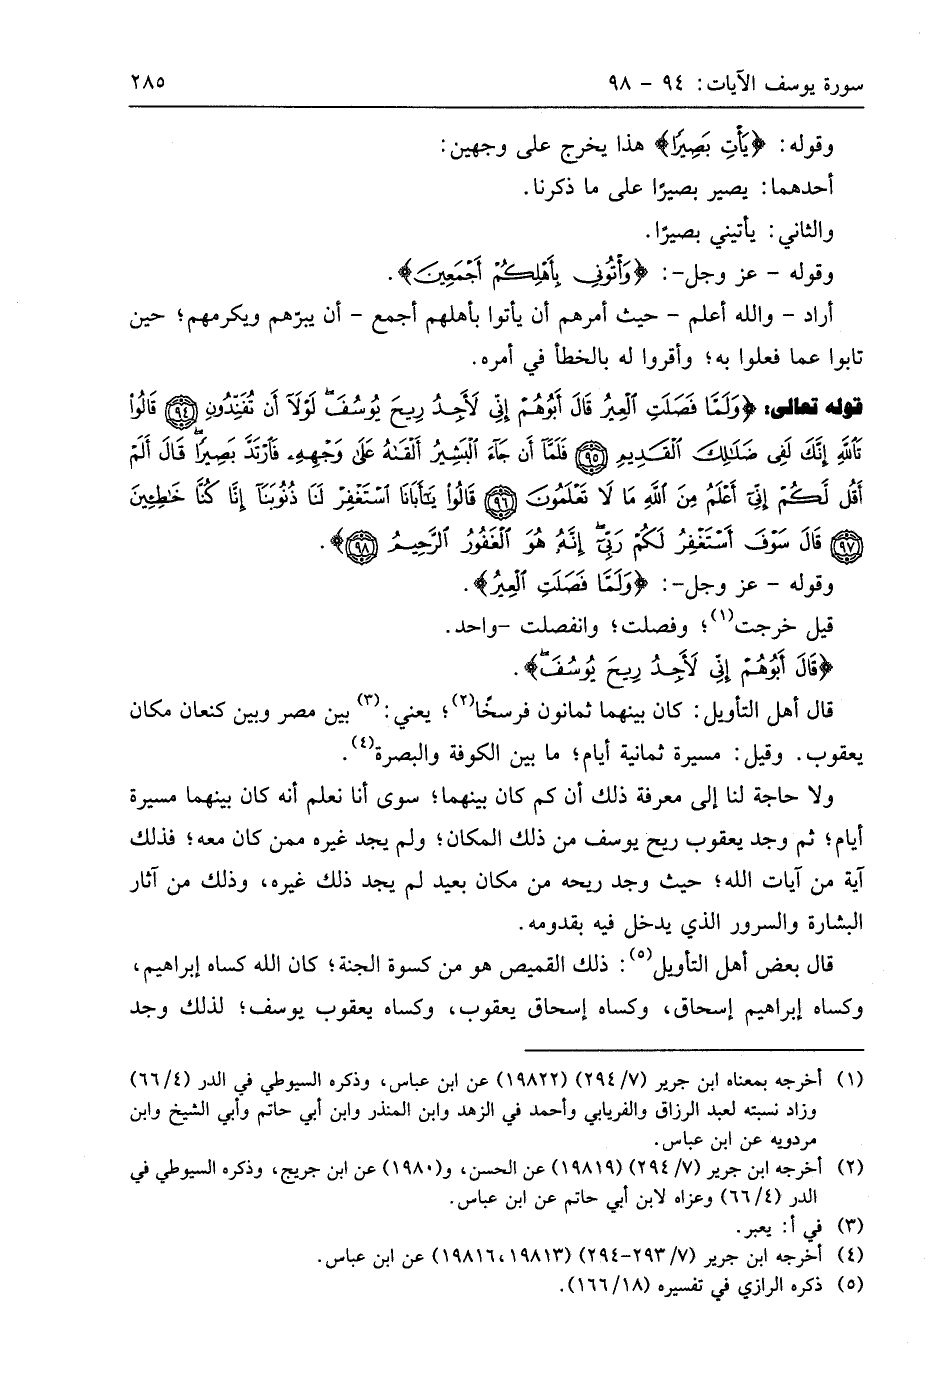 سورة يوسف الآيات: ٩٤ - ٩٨
٢٨٥
وقوله: ﴿يَأْتِ بَصِيرًا﴾ هذا يخرج على وجهين:
أحدهما: يصير بصيرًا على ما ذكرنا.
والثاني: يأتيني بصيرًا.
وقوله - عز وجل-: ﴿وَأْتُونِي بِأَهْلِكُمْ أَجْمَعِينَ﴾.
أراد - والله أعلم - حيث أمرهم أن يأتوا بأهلهم أجمع - أن يبرّهم ويكرمهم؛ حين
تابوا عما فعلوا به؛ وأقروا له بالخطأ في أمره.
قوله تعالى: ﴿وَلَمَّا فَصَلَتِ ٱلْعِيرُ قَالَ أَبُوهُمْ إِنِّي لَأَجِدُ رِيحَ يُوسُفَۖ لَوْلَآ أَن تُفَنِّدُونِ ﴿٩٤﴾ قَالُوا۟
تَٱللَّهِ إِنَّكَ لَفِى ضَلَٰلِكَ ٱلْقَدِيمِ ﴿٩٥﴾ فَلَمَّآ أَن جَآءَ ٱلْبَشِيرُ أَلْقَىٰهُ عَلَىٰ وَجْهِهِۦ فَٱرْتَدَّ بَصِيرًاۖ قَالَ أَلَمْ
أَقُل لَّكُمْ إِنِّىٓ أَعْلَمُ مِنَ ٱللَّهِ مَا لَا تَعْلَمُونَ ﴿٩٦﴾ قَالُوا۟ يَٰٓأَبَانَا ٱسْتَغْفِرْ لَنَا ذُنُوبَنَآ إِنَّا كُنَّا خَٰطِـِٔينَ
﴿٩٧﴾ قَالَ سَوْفَ أَسْتَغْفِرُ لَكُمْ رَبِّىٓۖ إِنَّهُۥ هُوَ ٱلْغَفُورُ ٱلرَّحِيمُ ﴿٩٨﴾﴾.
وقوله - عز وجل-: ﴿وَلَمَّا فَصَلَتِ ٱلْعِيرُ﴾.
قيل خرجت(١)؛ وفصلت؛ وانفصلت -واحد.
﴿قَالَ أَبُوهُمْ إِنِّي لَأَجِدُ رِيحَ يُوسُفَۖ﴾.
قال أهل التأويل: كان بينهما ثمانون فرسخًا(٢)؛ يعني:(٣) بين مصر وبين كنعان مكان
يعقوب. وقيل: مسيرة ثمانية أيام؛ ما بين الكوفة والبصرة(٤).
ولا حاجة لنا إلى معرفة ذلك أن كم كان بينهما؛ سوى أنا نعلم أنه كان بينهما مسيرة
أيام؛ ثم وجد يعقوب ريح يوسف من ذلك المكان؛ ولم يجد غيره ممن كان معه؛ فذلك
آية من آيات الله؛ حيث وجد ريحه من مكان بعيد لم يجد ذلك غيره، وذلك من آثار
البشارة والسرور الذي يدخل فيه بقدومه.
قال بعض أهل التأويل(٥): ذلك القميص هو من كسوة الجنة؛ كان الله كساه إبراهيم،
وكساه إبراهيم إسحاق، وكساه إسحاق يعقوب، وكساه يعقوب يوسف؛ لذلك وجد
(١) أخرجه بمعناه ابن جرير (٧/ ٢٩٤) (١٩٨٢٢) عن ابن عباس، وذكره السيوطي في الدر (٤/ ٦٦)
وزاد نسبته لعبد الرزاق والفريابي وأحمد في الزهد وابن المنذر وابن أبي حاتم وأبي الشيخ وابن
مردويه عن ابن عباس.
(٢) أخرجه ابن جرير (٧/ ٢٩٤) (١٩٨١٩) عن الحسن، و(١٩٨٠) عن ابن جريج، وذكره السيوطي في
الدر (٤/ ٦٦) وعزاه لابن أبي حاتم عن ابن عباس.
(٣) في أ: يعبر.
(٤) أخرجه ابن جرير (٧/ ٢٩٣-٢٩٤) (١٩٨١٣، ١٩٨١٦) عن ابن عباس.
(٥) ذكره الرازي في تفسيره (١٨/ ١٦٦).